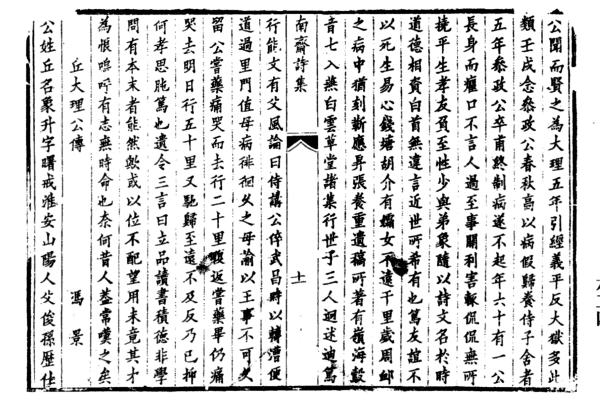 公聞而賢之為大理五年引經義平反大獄多此
類壬戌念參政公春秋高以病假歸養侍子舍者
五年參政公卒甫終制病遂不起年六十有一公
長身而癯口不言人過至事關利害輒侃侃無所
撓平生孝友負至性少與弟象隨以詩文名於時
道德相資白首無違言近世所希有也篤友誼不
以死生易心錢塘胡介有孀女不遠千里歲周卹
之病中猶刻靳應昇張養重遺稿所著有嶺海
音七入燕白雲草堂諸集行世子三人迥述迪篤
南齋詩集　十一
行能文有父風論曰侍講公倅武昌時以轉漕便
道過里門值母病徘徊久之母諭以王事不可久
留公嘗藥痛哭而去行二十里復返嘗藥畢仍痛
哭去明日行五十里又馳歸至遠不及反乃已抑
何孝思肫篤也遺令三言曰立品讀書積德非學
問有本末者能然歟或以位不配望用未竟其才
為恨嗚呼有志無時命也奈何昔人蓋常嘆之矣
丘大理公傳　馮景
公姓丘名象升字曙戒淮安山陽人父俊孫歷仕